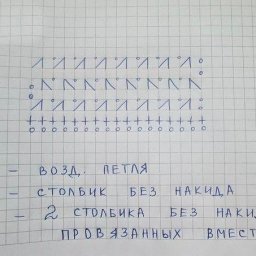 - ВОЗД. ПЕТЛЯ
- СТОЛБИК БЕЗ НАКИДА
- 2 СТОЛБИКА БЕЗ НАКИ
ПРОВЯЗАННЫХ ВМЕСТ